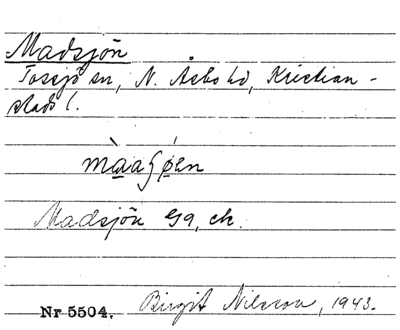 Madsjön
Tossjö sn, N. Åsbo hd, Kristian-
stads l.
màaʃǿen
Madsjön Ga, ek.
Nr 5504. Birgit Nilsson, 1943.